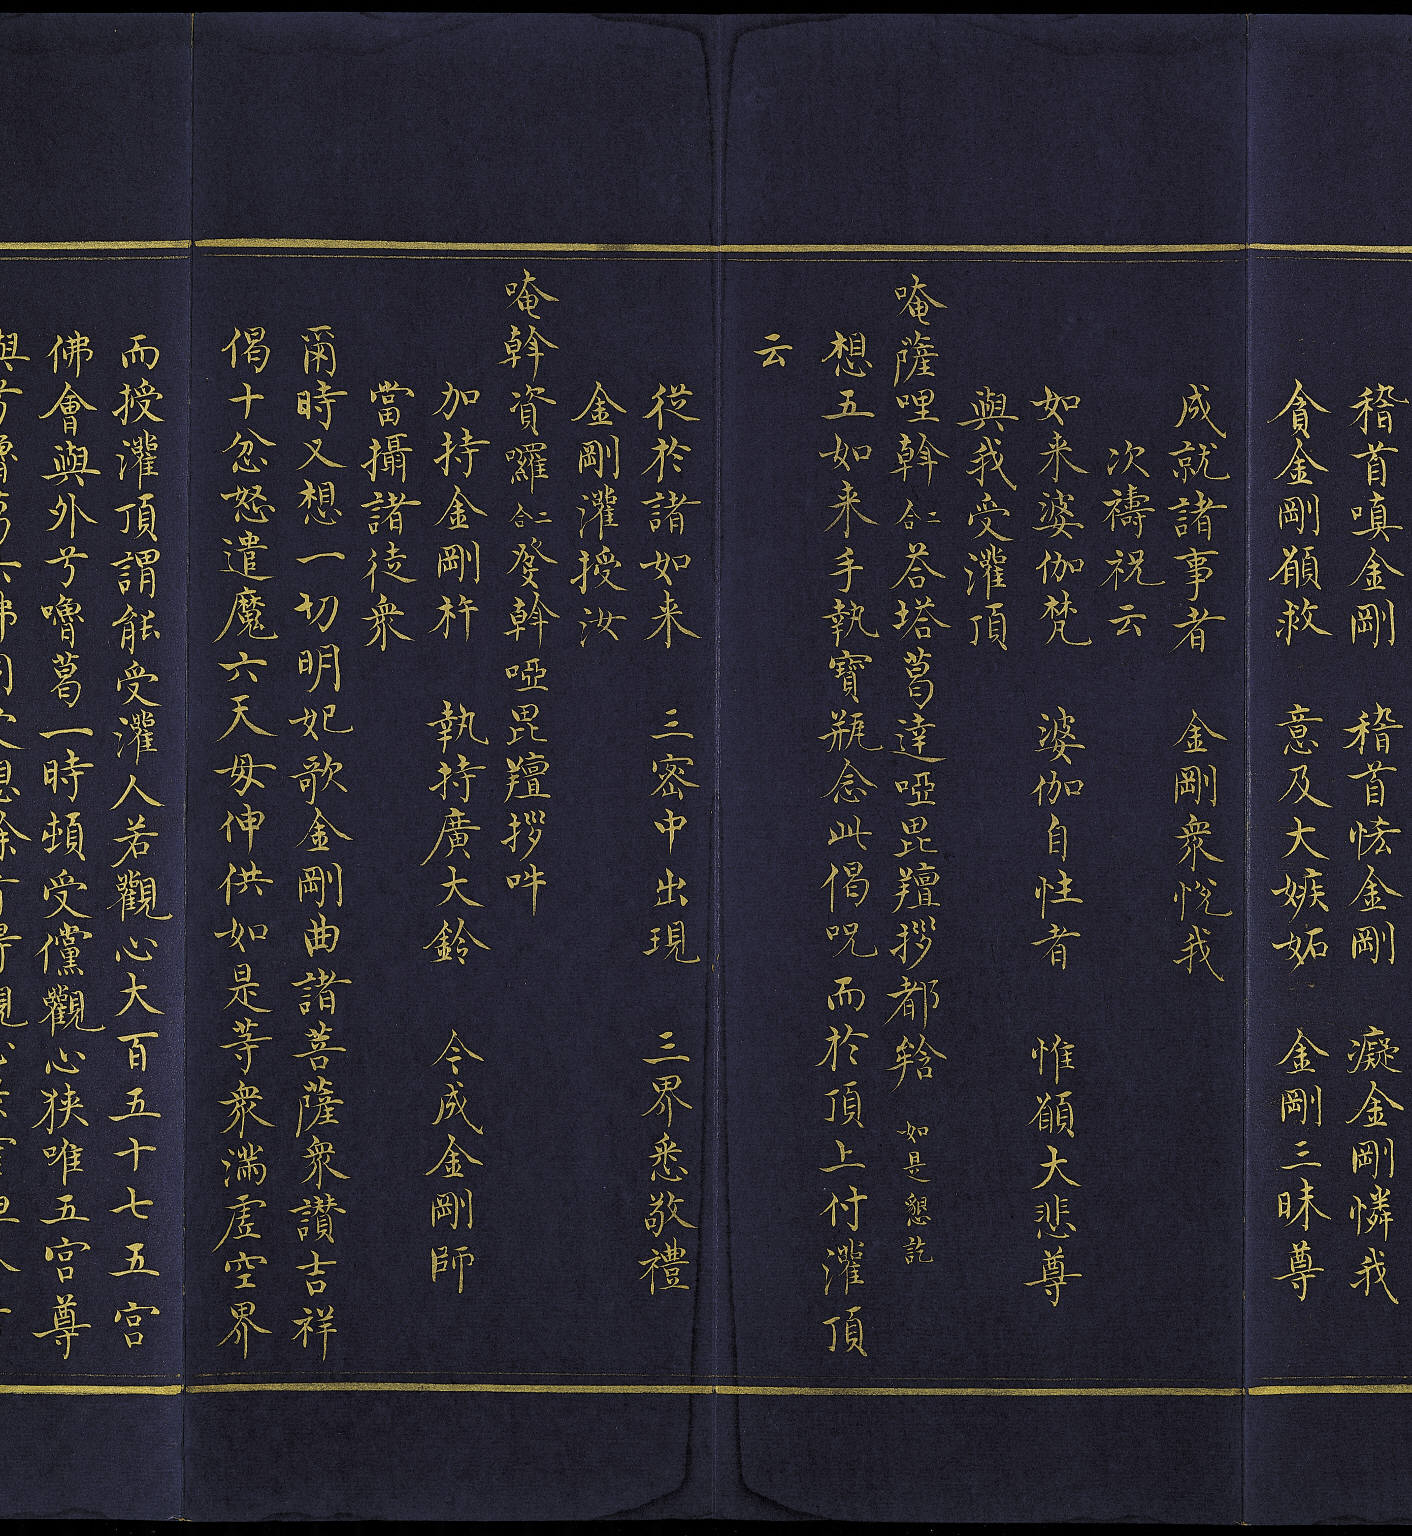 稽首嗔金剛　稽首慳金剛　癡金剛憐我
貪金剛願救　意及大嫉妬　金剛三昧尊
成就諸事者　金剛衆悅我
次禱祝云
如来婆伽梵　婆伽自性者　惟願大悲尊
與我受灌頂
唵薩哩斡二合荅塔葛達啞毘羶拶都𤙖如是懇訖
想五如来手執寶瓶念此偈呪而於頂上付灌頂
云
從於諸如来　三密中出現　三界悉敬禮
金剛灌授汝
唵斡資囉二合癹斡啞毘羶拶吽
加持金剛杵　執持廣大鈴　令成金剛師
當攝諸徒衆
爾時又想一切明妃歌金剛曲諸菩薩衆讃吉祥
偈十忿怒遣魔六天母伸供如是等衆滿虛空界
而授灌頂謂能受灌人若觀心大百五十七五宮
佛會與外兮嚕葛一時頓受儻觀心狹唯五宮尊